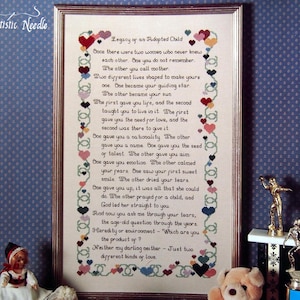 Artistic Needle
Legacy of an Adopted Child
Once there were two women who never knew
each other. One you do not remember.
The other you call mother.
Two different lives shaped to make yours
one. One became your guiding star.
The other became your sun.
The first gave you life, and the second
taught you to live in it. The first
gave you the need for love, and the
second was there to give it.
One gave you a nationality. The other
gave you a name. One gave you the seed
of talent. The other gave you aim.
One gave you emotion. The other calmed
your fears. One saw your first sweet
smile. The other dried your tears.
One gave you up, it was all that she could
do. The other prayed for a child, and
God led her straight to you.
And now you ask me through your tears,
the age-old question through the years.
Heredity or environment - Which are you
the product of?
Neither my darling neither - Just two
different kinds of love.